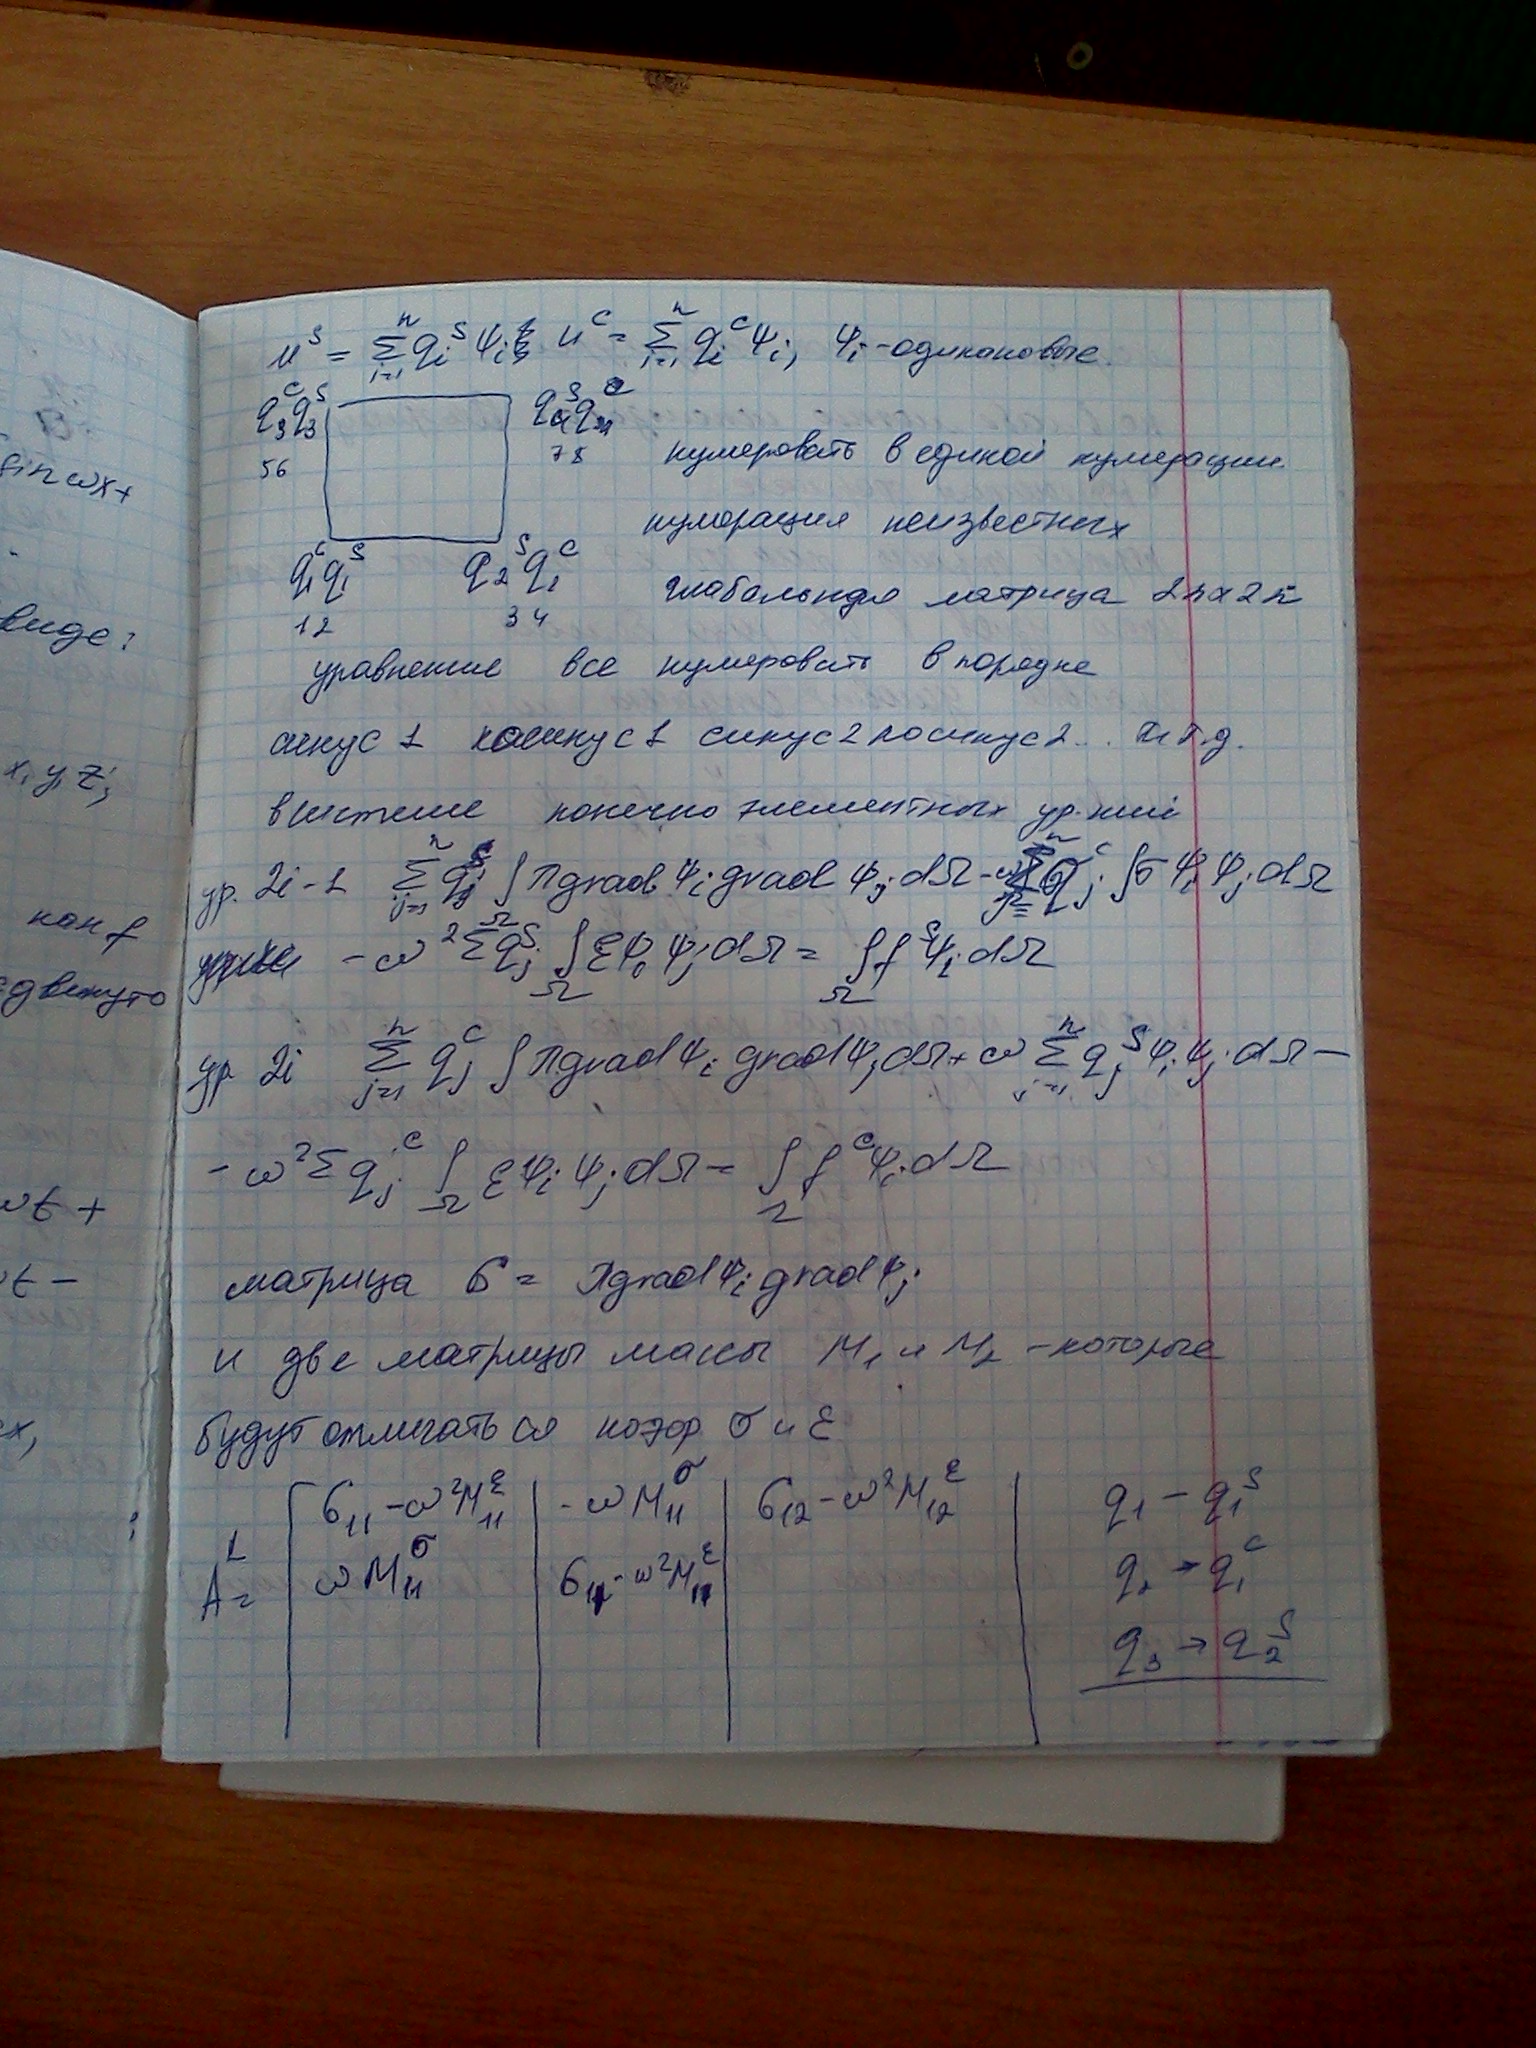 sin ωx +
виде:
x, y, z;
как f
двинуто
ωt +
t –
x,
u^S = Σ_{i=1}^n q_i^S ψ_i; u^C = Σ_{i=1}^n q_i^C ψ_i, ψ_i - одинаковые.
q_3^C q_3^S q_4^S q_4^C
56 78 нумеровать в единой нумерации
нумерация неизвестных
q_1^C q_1^S q_2^S q_2^C глобальная матрица 2n x 2n
12 34
уравнение все нумеровать в порядке
синус 1 косинус 1 синус 2 косинус 2... и т.д.
в системе конечно элементных ур-ний
ур. 2i-1 Σ_{j=1}^n q_j^S ∫_Ω λ grad ψ_i grad ψ_j dΩ - ω Σ_{j=1}^n q_j^C ∫ σ ψ_i ψ_j dΩ
- ω^2 Σ q_j^S ∫_Ω ε ψ_i ψ_j dΩ = ∫_Ω f^S ψ_i dΩ
ур 2i Σ_{j=1}^n q_j^C ∫ λ grad ψ_i grad ψ_j dΩ + ω Σ_{j=1}^n q_j^S ψ_i ψ_j dΩ –
- ω^2 Σ q_j^C ∫_Ω ε ψ_i ψ_j dΩ = ∫_Ω f^C ψ_i dΩ
матрица G = λ grad ψ_i grad ψ_j
и две матрицы массы M_1 и M_2 - которые
будут отличаться коэф σ и ε
G_11 - ω^2 M_11^ε | - ω M_11^σ | G_12 - ω^2 M_12^ε | q_1 – q_1^S
A^L = ω M_11^σ | G_11 - ω^2 M_11^ε | q_2 → q_1^C
q_3 → q_2^S